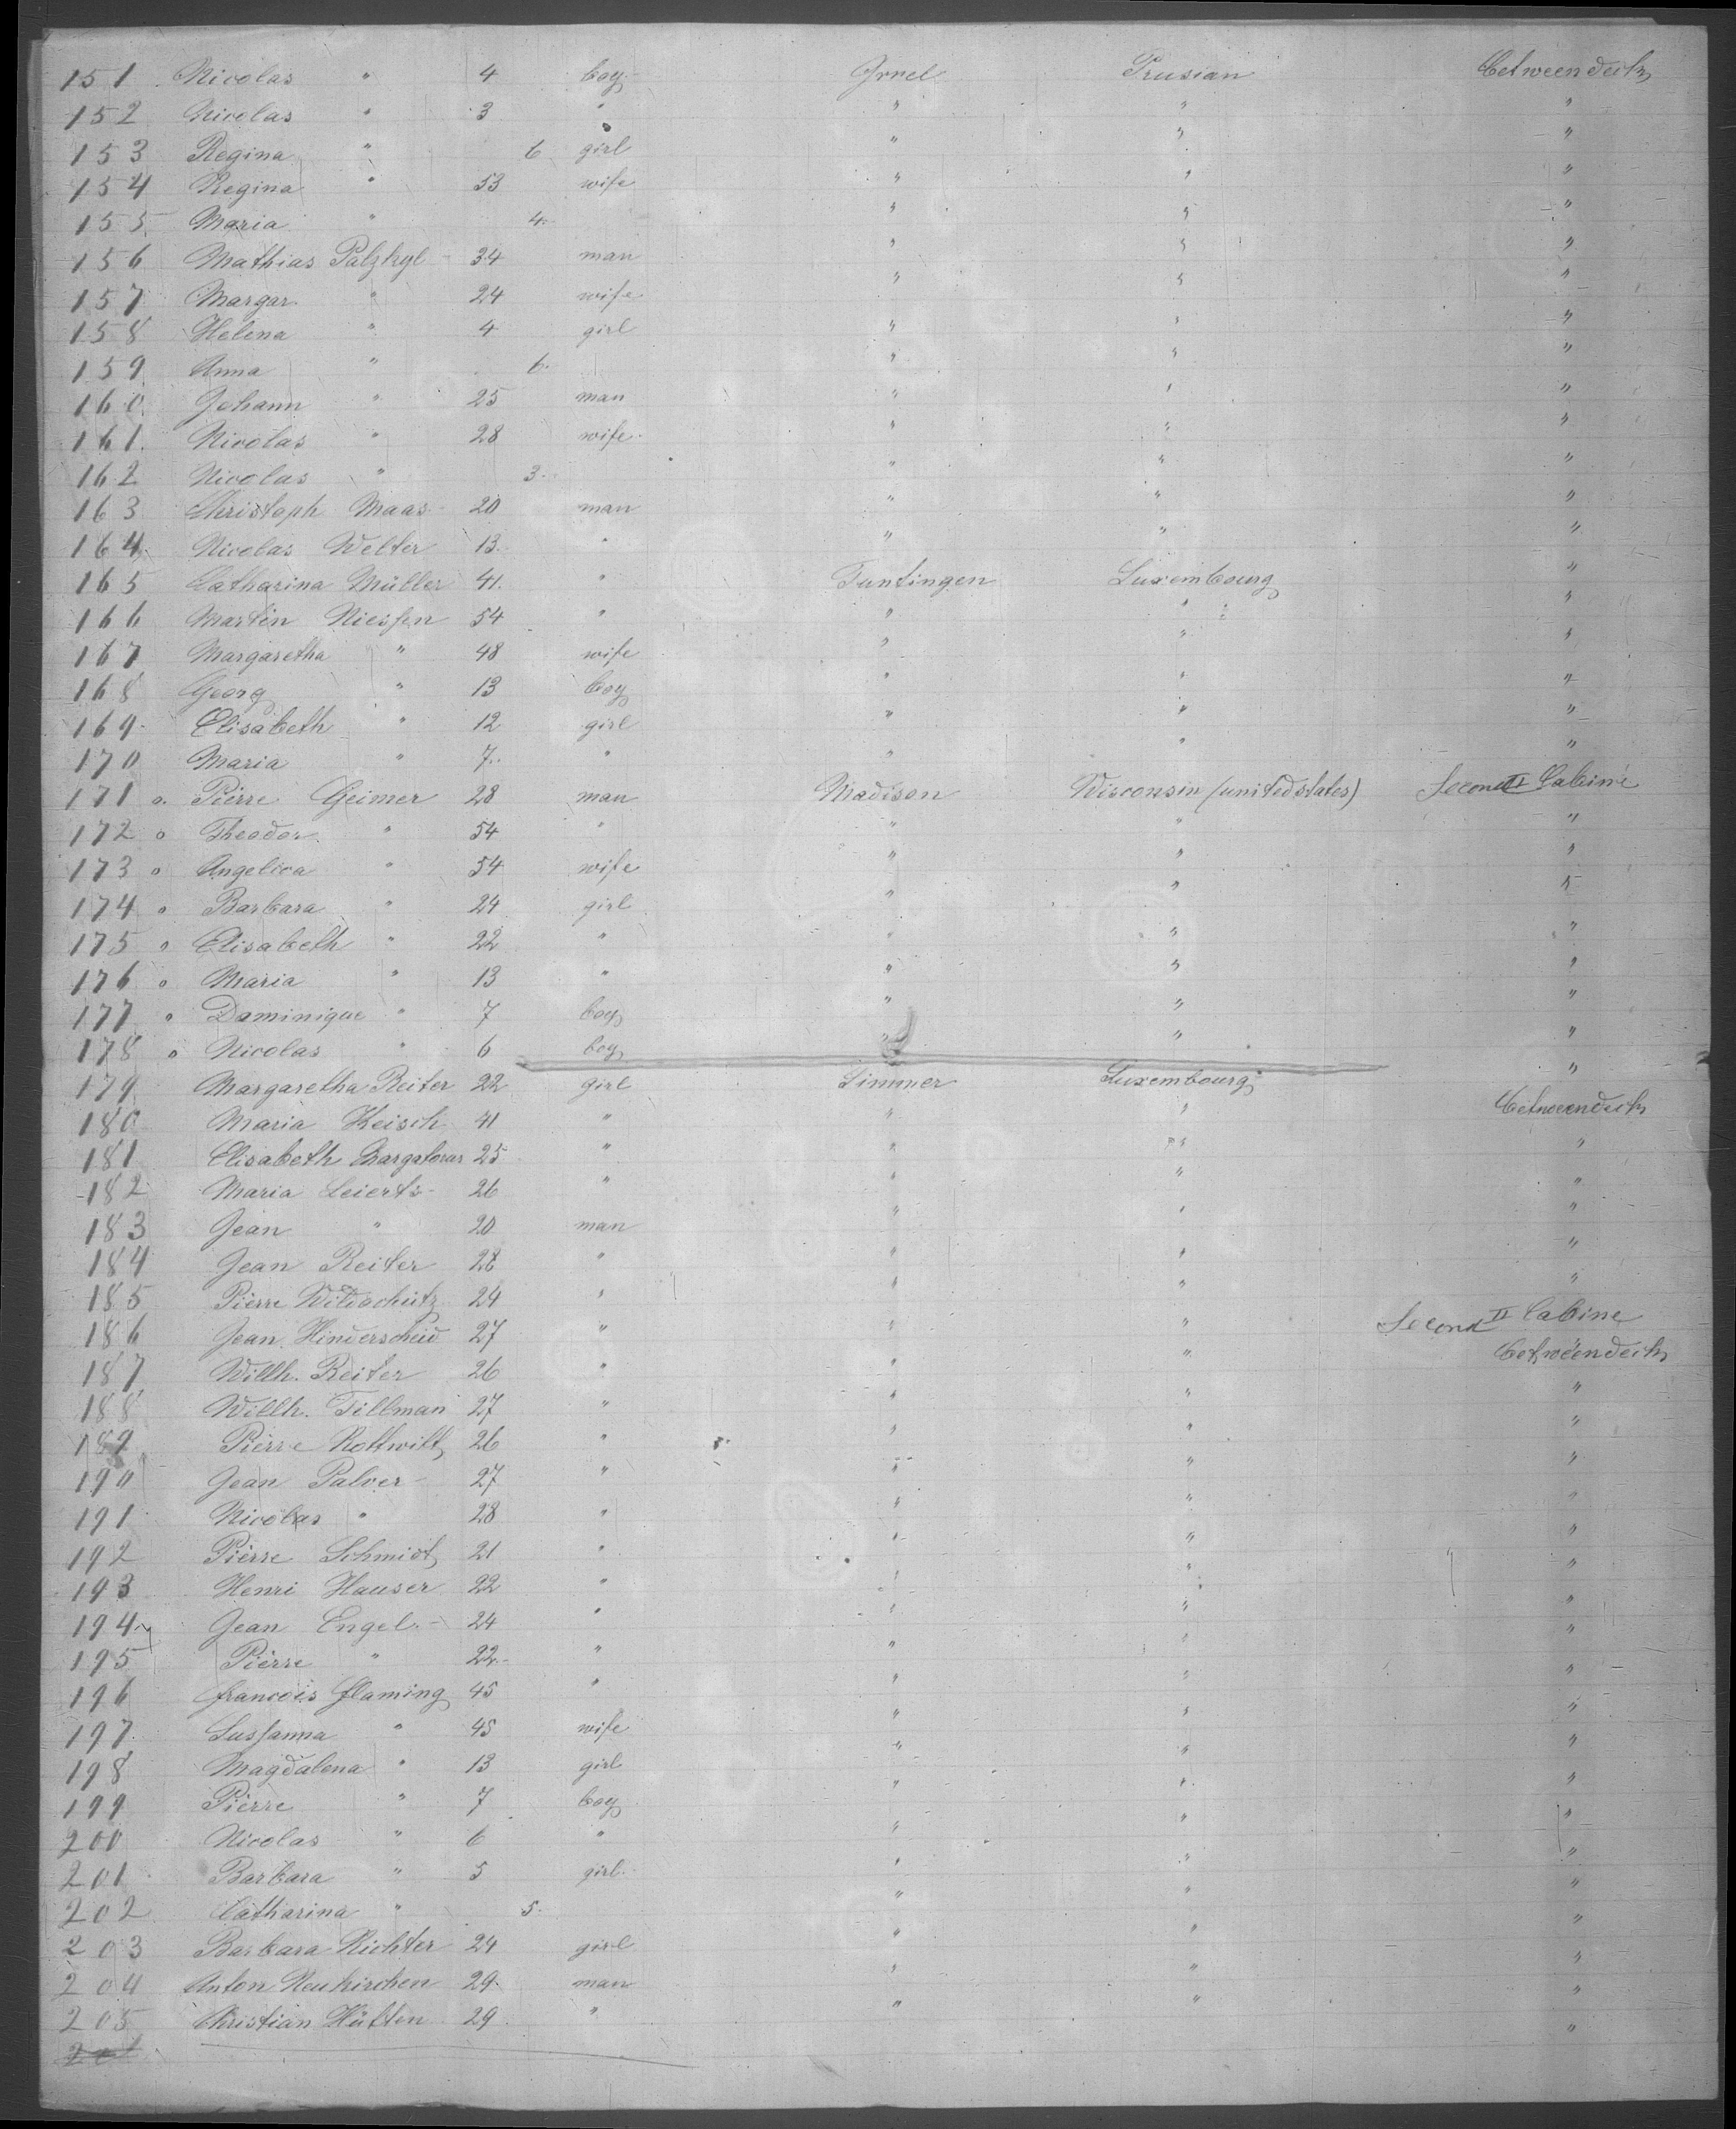 151 Nicolas " 4 boy Irrel Prusian betweendeck
152 Nicolas " 3 " " " "
153 Regina " 6 girl " " "
154 Regina " 53 wife " " "
155 Maria " 4 " " "
156 Mathias Palzkyl 34 man " " "
157 Margar. " 24 wife " " "
158 Helena " 4 girl " " "
159 Anna " 6. " " "
160 Johann " 25 man " " "
161. Nicolas " 28 wife " " "
162 Nicolas " 3 " " "
163 Christoph Maas 20 man " " "
164. Nicolas Welter 13. " " " "
165 Catharina Müller 41. " Tuntingen Luxembourg "
166 Martin Niessen 54 " " " "
167 Margaretha " 48 wife " " "
168 Georg " 13 boy " " "
169. Elisabeth " 12 girl " " "
170 Maria " 7.. " " " "
171 o. Pierre Geimer 28 man Madison Wisconsin (united states) Second II Cabine
172 o Theodor " 54 " " " "
173 o Angelica " 54 wife " " "
174 o Barbara " 24 girl " " "
175 o Elisabeth " 22 " " " "
176 o Maria " 13 " " " "
177 o Dominique " 7 boy " " "
178 o Nicolas " 6 boy " " "
179 Margaretha Reiter 22 girl Simmer Luxembourg "
180 Maria Keisch 41 " " " betweendeck
181 Elisabeth 25 " " " "
182 Maria Leierts 26 " " " "
183 Jean " 20 man " " "
184 Jean Reiter 28 " " " "
185 Pierre Wildschütz 24 " " " "
186 Jean Hinderscheid 27 " " " Second II Cabine
187 Willh. Reiter 26 " " " betweendeck
188 Willh. Tillman 27 " " " "
189 Pierre Rottwitt 26 " " " "
190 Jean Palver 27 " " " "
191 Nicolas " 28 " " " "
192 Pierre Schmidt 21 " " " "
193 Henri Hauser 22 " " " "
194 Jean Engel 24 " " " "
195 Pierre " 22 " " " "
196 francois flaming 45 " " " "
197. Sussanna " 45 wife " " "
198 Magdalena " 13 girl " " "
199 Pierre " 7 boy " " "
200 Nicolas " 6 " " " "
201 Barbara " 5 girl " " "
202 Catharina " 5. " " "
203 Barbara Richter 24 girl " " "
204 Anton Neukirchen 29. man " " "
205 Christian Hütten 29 " " " "